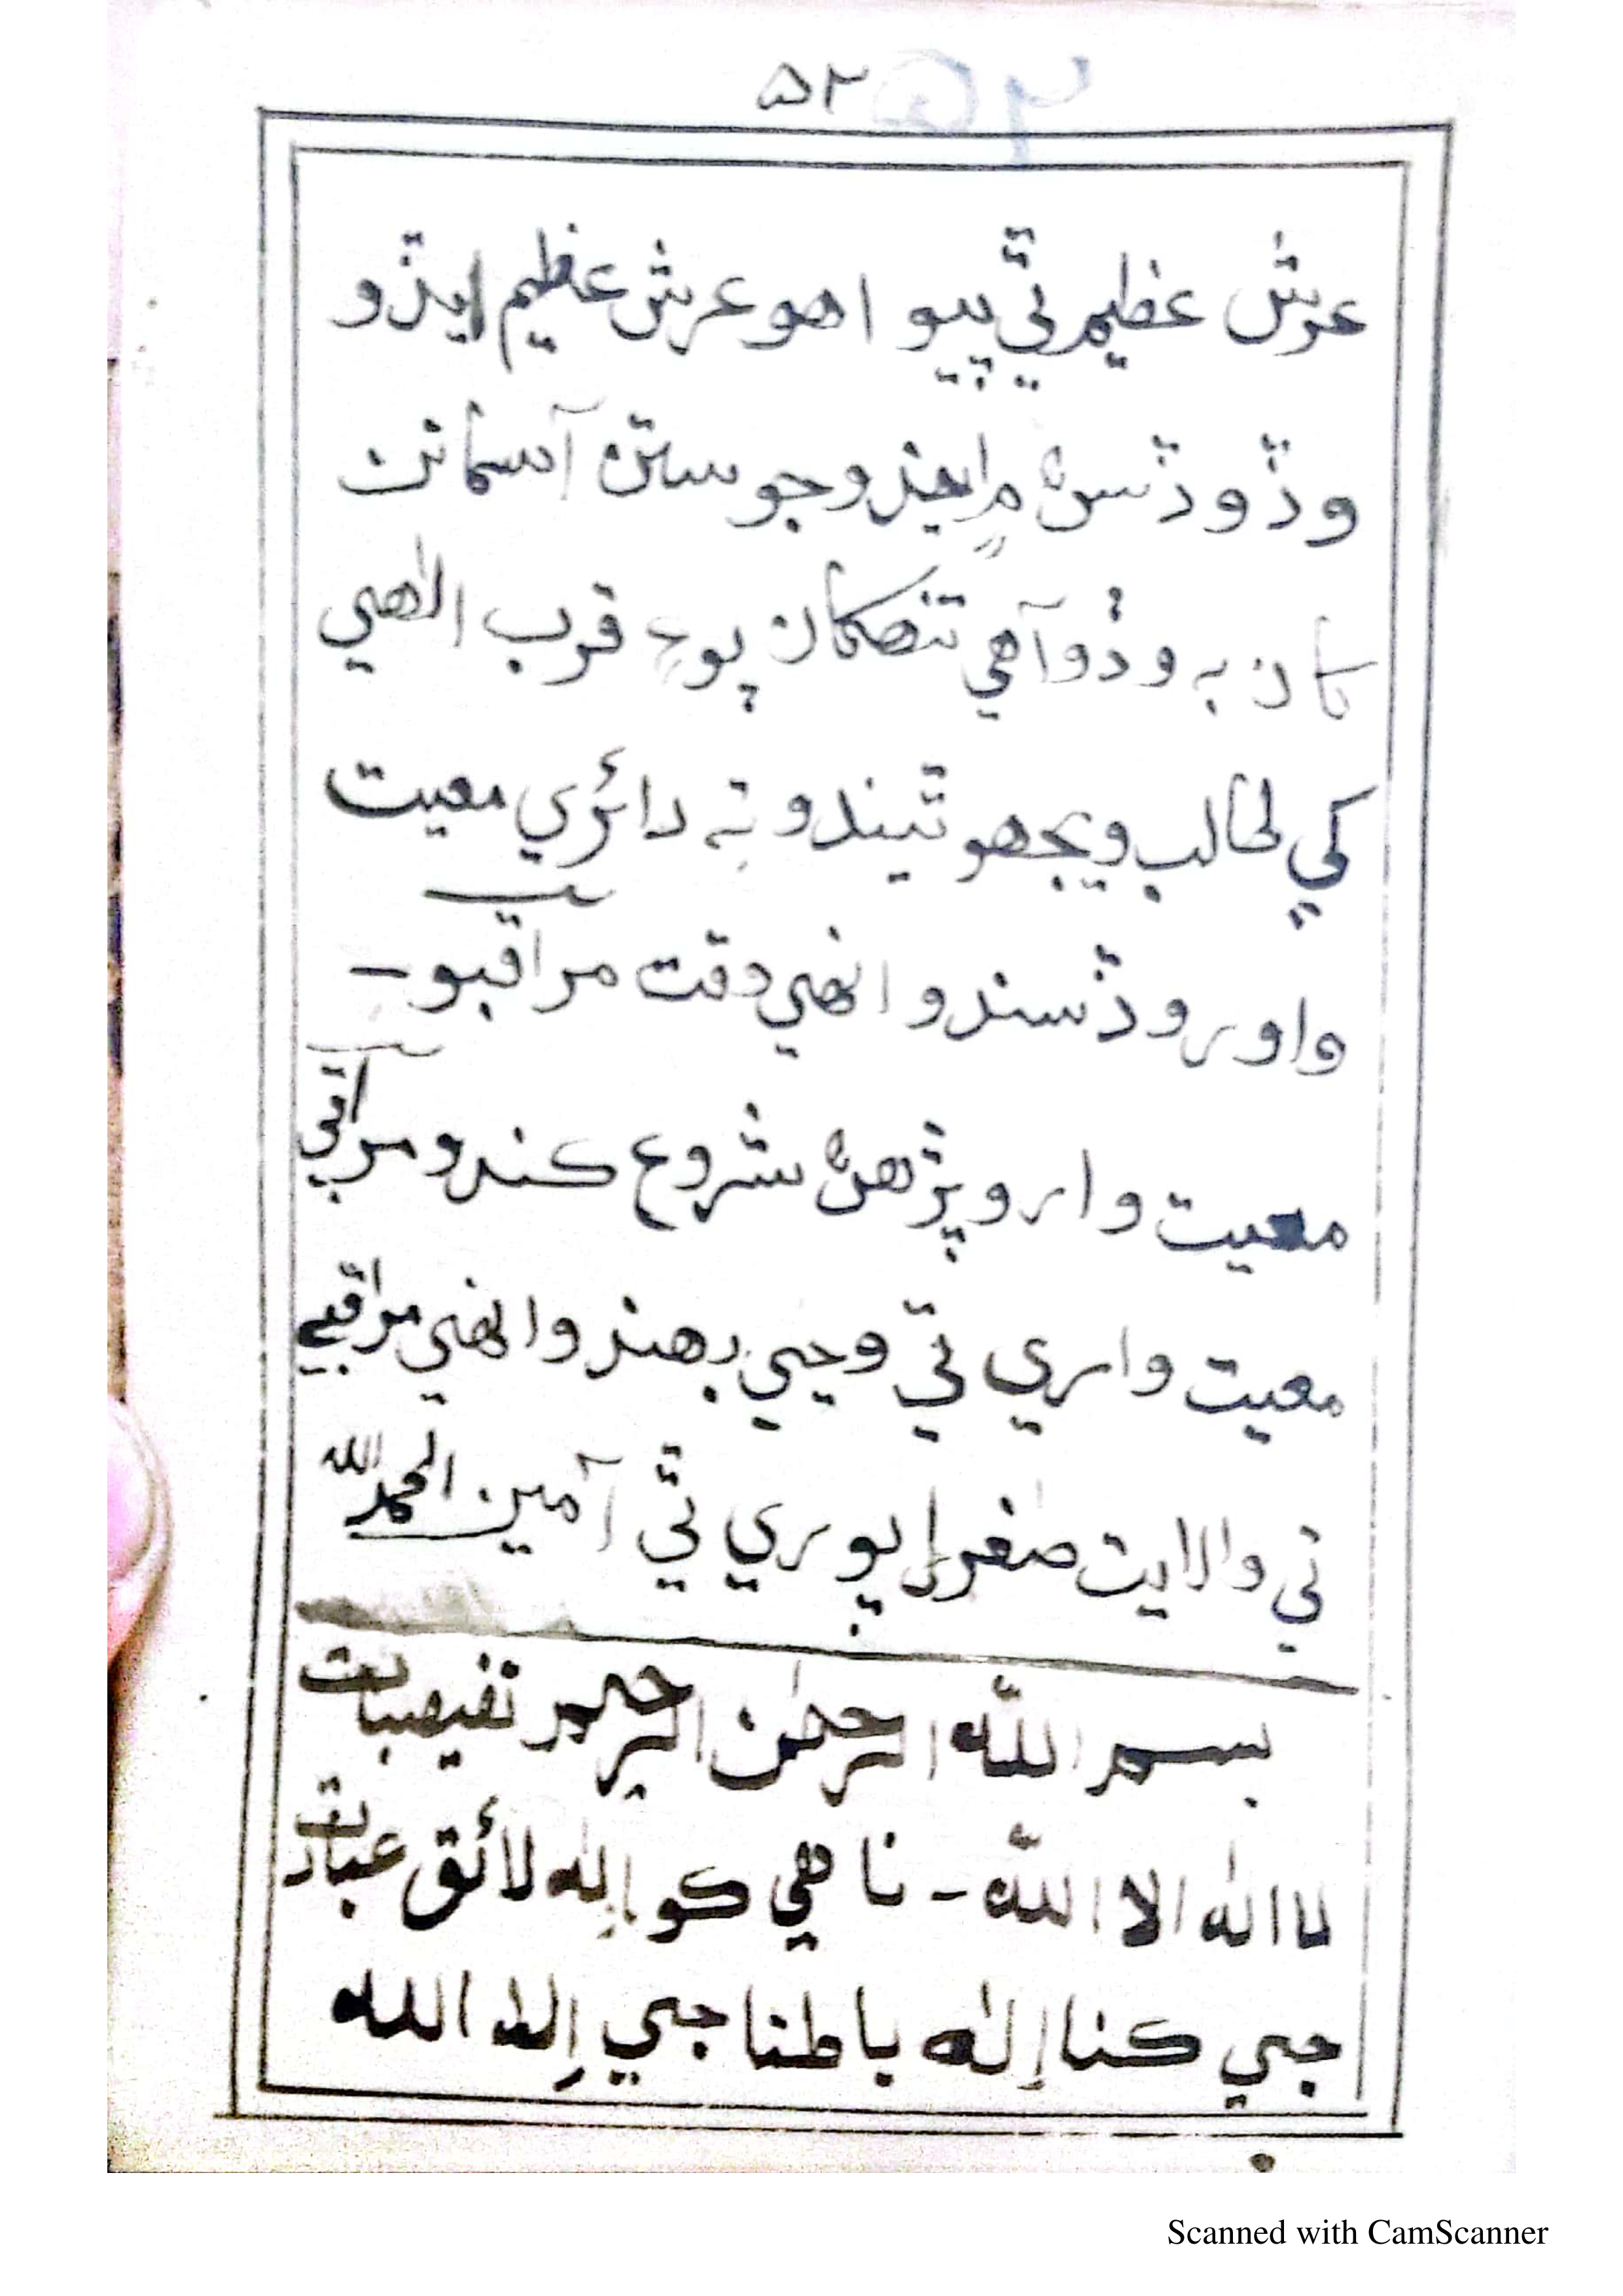 ۵۲
عرش عظيم تي پيو اهو عرش عظيم ايڏو
وڏو ڏسڻ ۾ ايندو جو ستن آسمانن
کان به وڏو آهي تنهکان پوءِ قرب الٰهي
کي طالب ويجهو ٿيندو ته دائري معيت
وارو ڏسندو انهي وقت مراقبو -
معيت وارو پڙهڻ شروع ڪندو مراقبي
معيت واري تي وڃي رهندو انهي مراقبي
تي ولايت صغرا پوري ٿي آمين الحمدلله
بسم الله الرحمٰن الرحيم تفيهبات
لا اله الا الله - ناهي ڪو إله لائق عبادت
جي ڪنا إلٰه باطنا جي إلا الله
Scanned with CamScanner